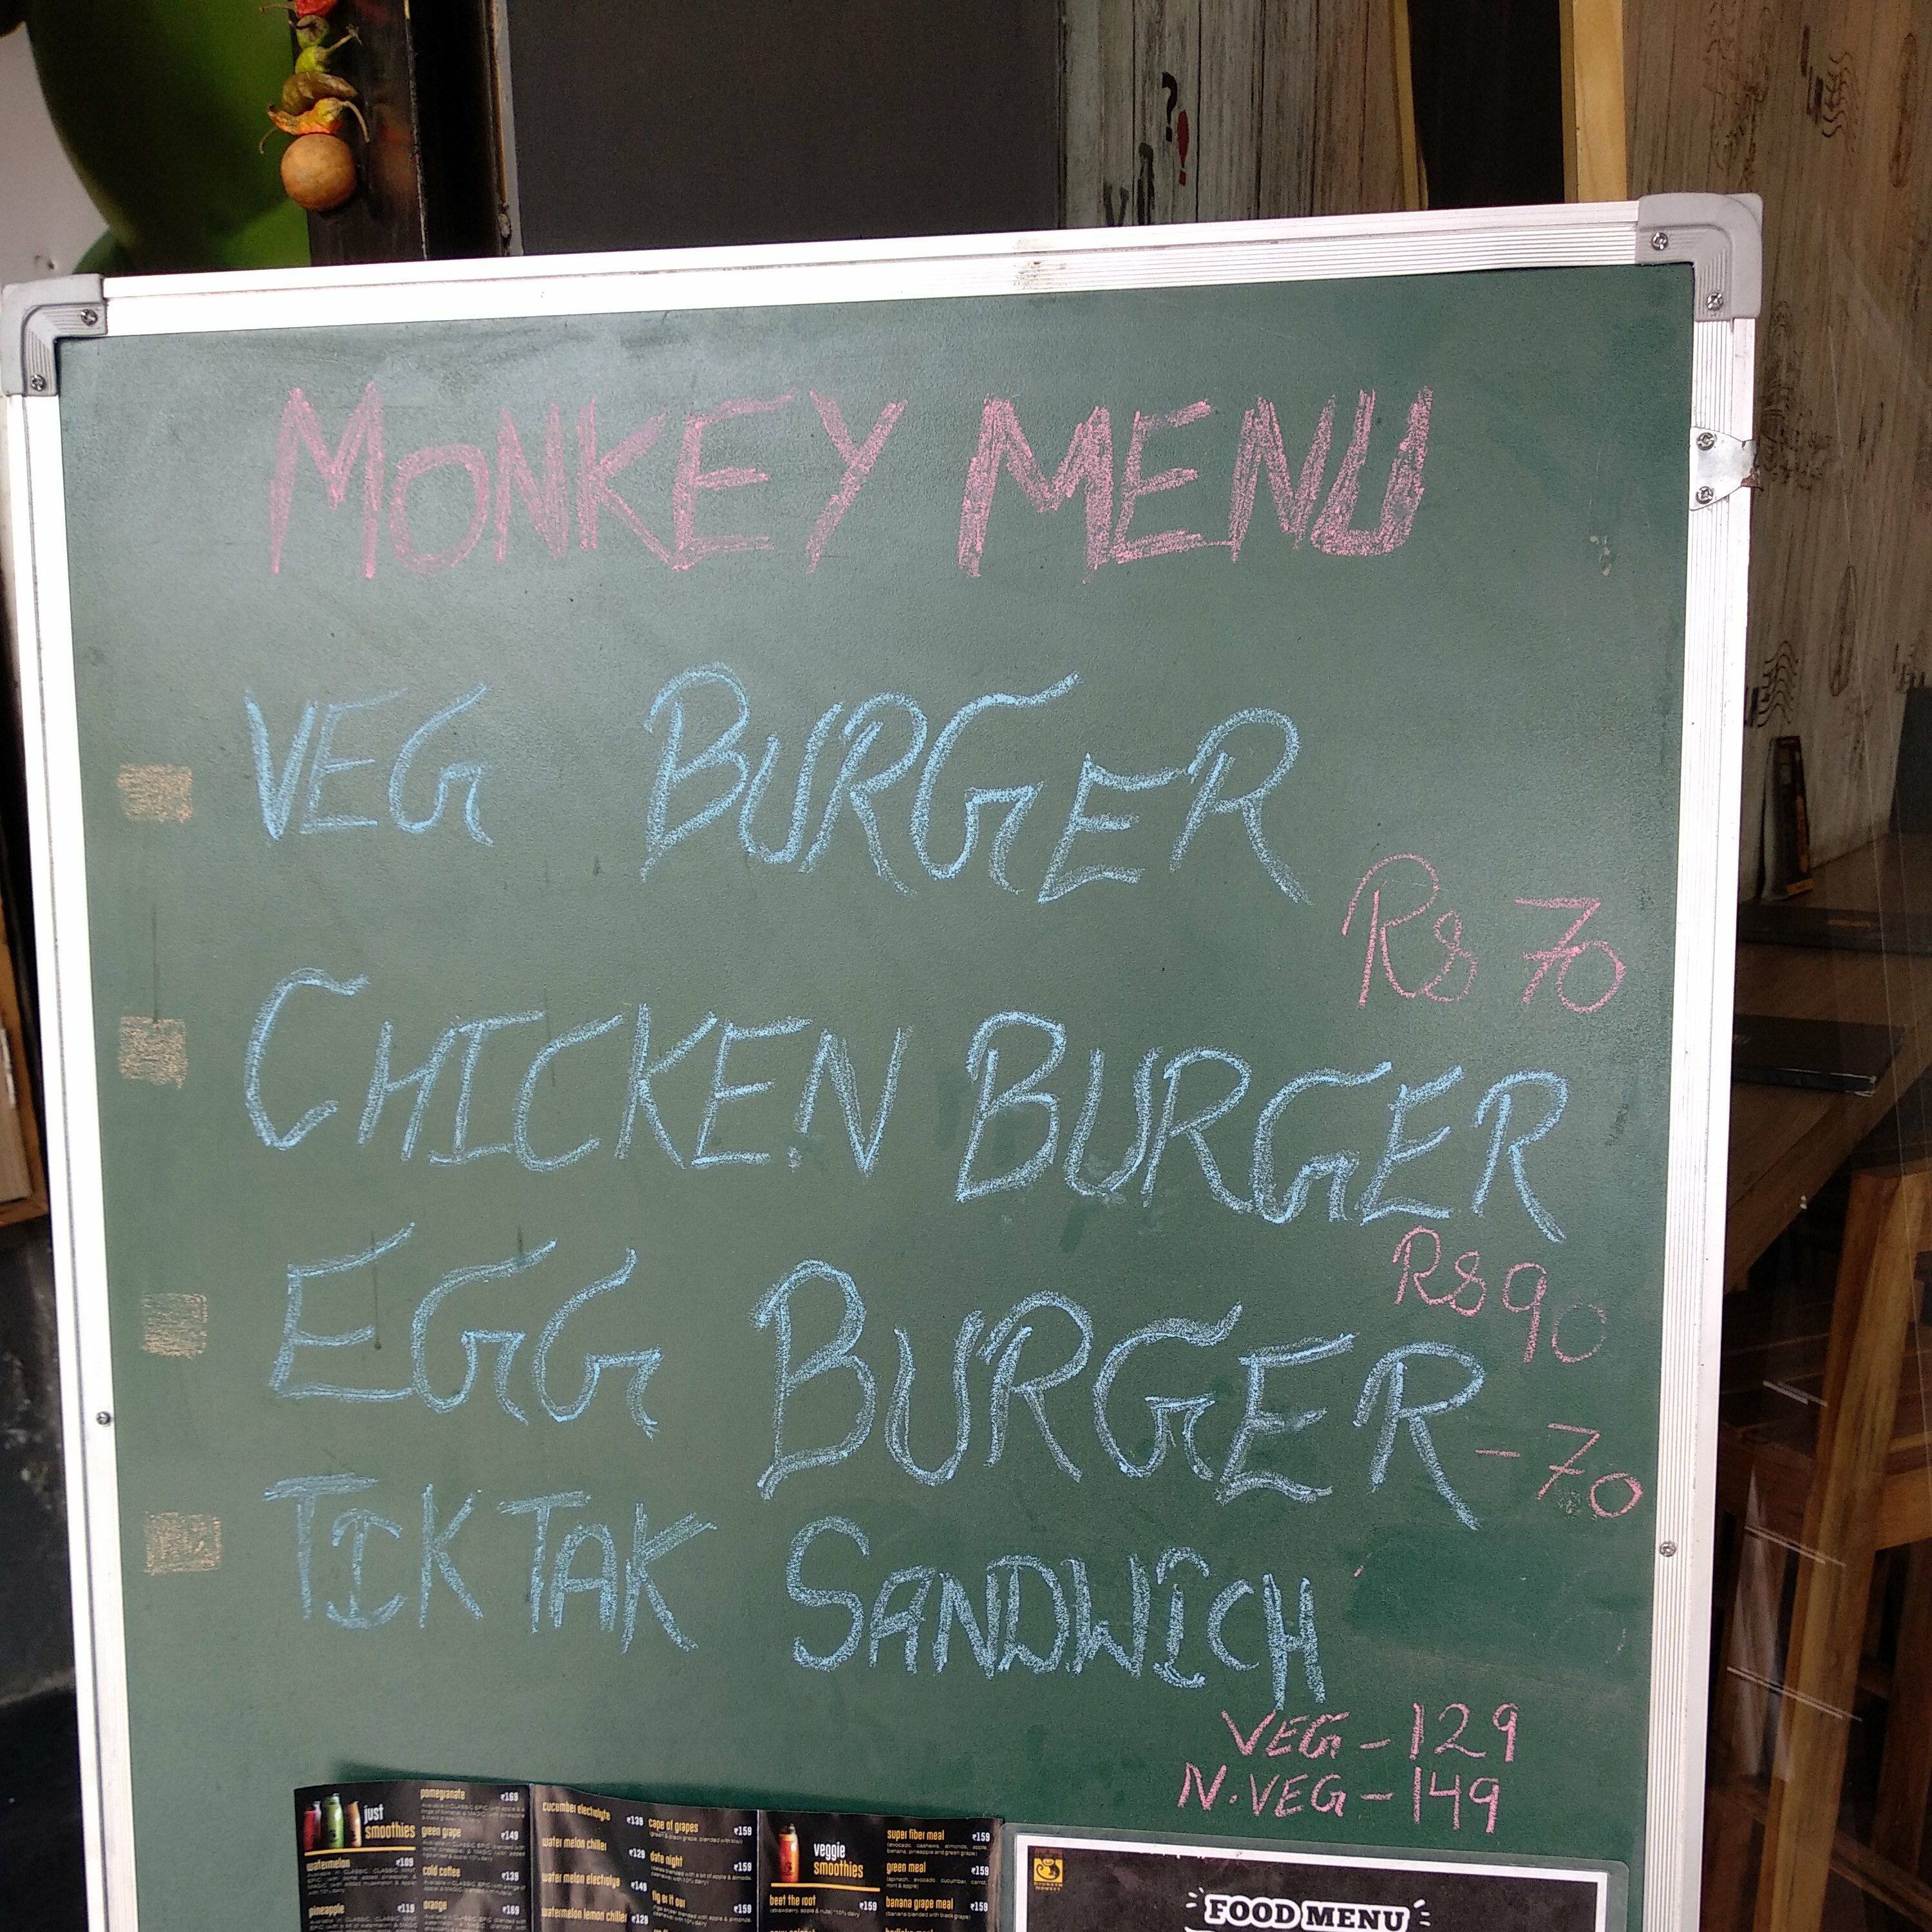 MONKEY MENU
VEG BURGER
Rs 70
CHICKEN BURGER
Rs 90
EGG BURGER - 70
TIK TAK SANDWICH
VEG - 129
N.VEG - 149
just
smoothies
watermelon ₹109
pineapple ₹119
pomegranate ₹169
green grape ₹149
cold coffee ₹139
orange ₹169
cucumber electrolyte ₹139
water melon chiller ₹129
water melon electrolyte ₹149
watermelon lemon chiller ₹129
cape of grapes ₹159
date night ₹159
fig or it our ₹159
veggie
smoothies
beet the root ₹159
super fiber meal ₹159
green meal ₹159
banana grape meal ₹159
FOOD MENU